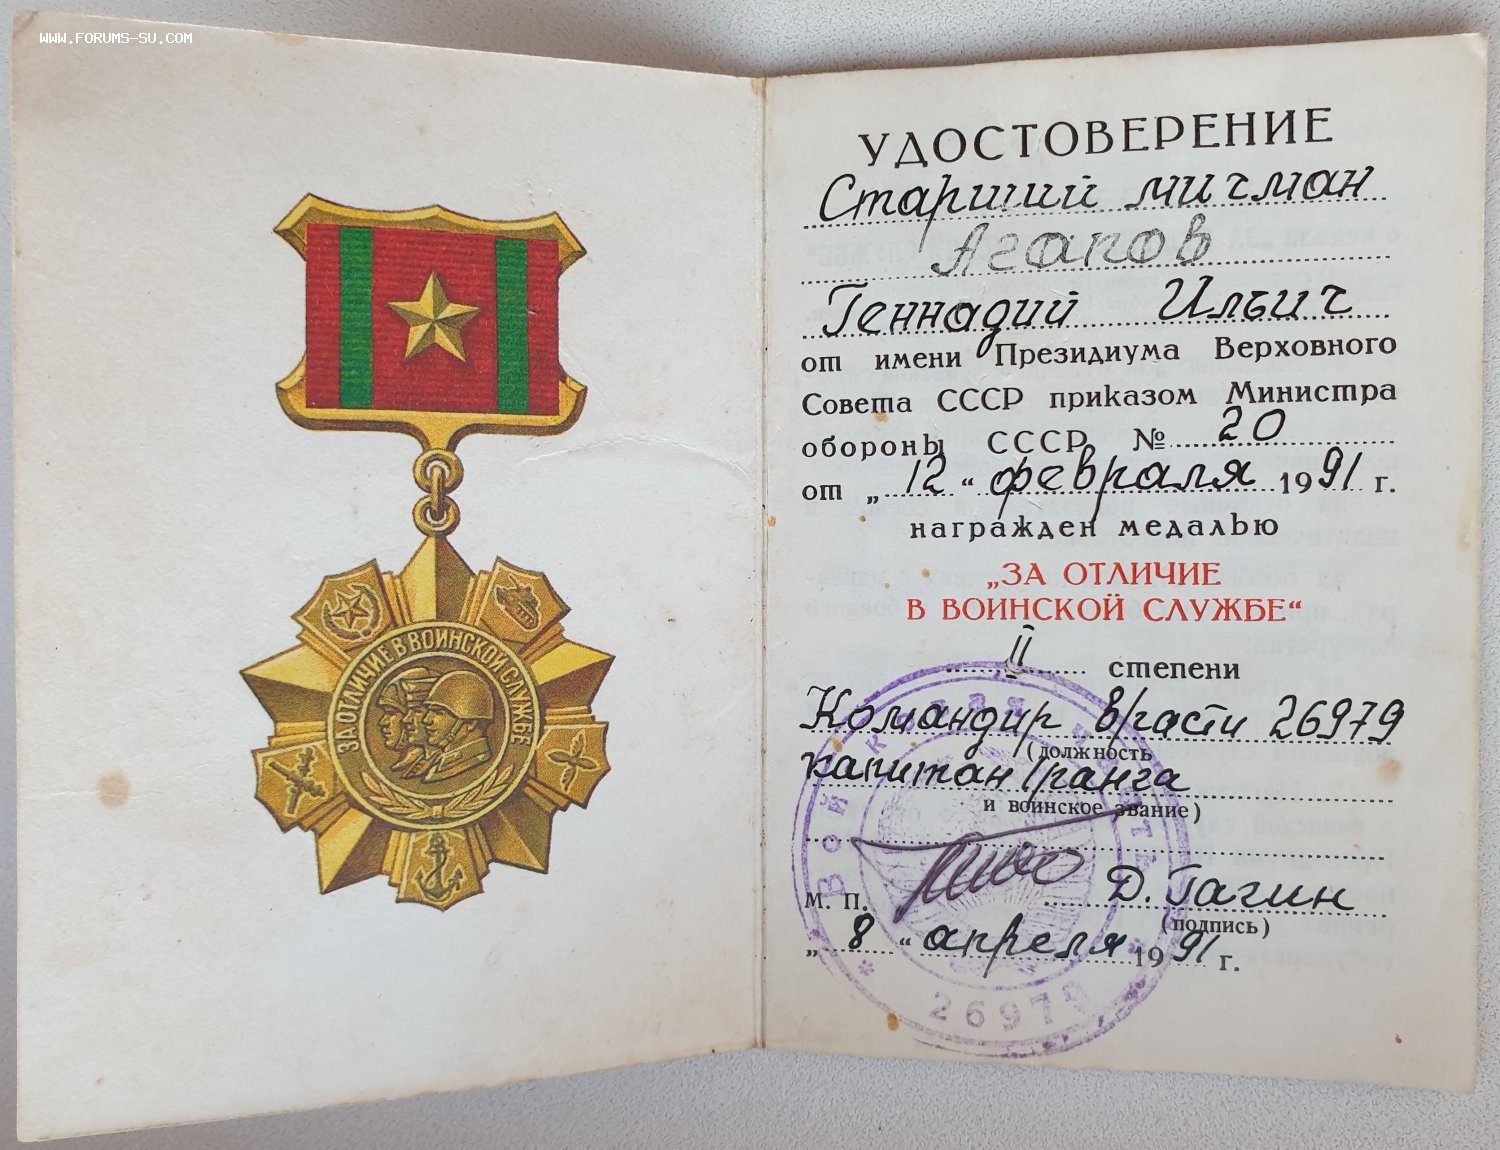 WWW.FORUMS-SU.COM
ЗА ОТЛИЧИЕ В ВОИНСКОЙ СЛУЖБЕ
УДОСТОВЕРЕНИЕ
Старший мичман
Агапов
Геннадий Ильич
от имени Президиума Верховного
Совета СССР приказом Министра
обороны СССР № 20
от „12“ февраля 1991 г.
награжден медалью
„ЗА ОТЛИЧИЕ
В ВОИНСКОЙ СЛУЖБЕ“
II степени
Командир в/части 26979
(должность
капитан I ранга
и воинское звание)
М. П. Д. Гагин
(подпись)
„8“ апреля 1991 г.
Войсковая часть
* 26979 *